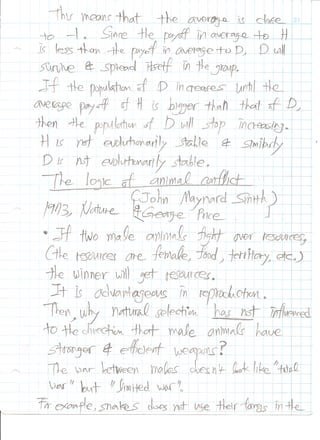 This means that the average is close
to -1. Since the payoff in average to H
is less than the payoff in average to D, D will
survive & spread itself in the group.
If the population of D increases until the
average payoff of H is bigger than that of D,
then the population of D will stop increasing.
H is not evolutionarily stable & similarly
D is not evolutionarily stable.
The logic of animal conflict
1973, Nature (John Maynard Smith)
& George Price
• If two male animals fight over resources,
(the resources are female, food, territory, etc.)
the winner will get resources.
It is advantageous in reproduction.
Then, why natural selection has not influenced
to the direction that male animals have
stronger & efficient weapons?
The war between males doesn't look like "total
war" but "limited war".
For example, snakes does not use their fangs in the